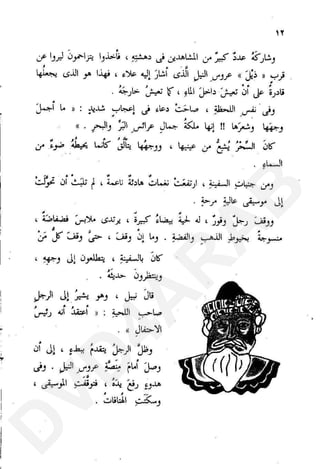 ١٢
وشاركه عدد كبير من المشاهدين في دهشته ، فأخذوا يتراجعون ليروا عن
قرب « » عروس النيل الذي أشار إليه علاء ، فهذا هو الذي جعلها
قادرة على أن تعبر داخل الماء ، كما تعبر خارجه .
وفي نفس اللحظة ، صاحت دعاء في إعجاب شديد : « ما أجمل
وجهها وشعرها !! إنها ملكة جمال عرائس البر والبحر » .
كان السحر يشع من عينيها ، ووجهها يتألق كأنما يحيطه ضوء من
السماء .
ومن جنبات السفينة ، انبعثت نغمات هادئة ناعمة ، لم تلبث أن تحولت
إلى موسيقى عالية مرحة .
ووقف رجل وقور ، له لحية بيضاء كبيرة ، يرتدي ملابس فضفاضة ،
منسوجة بخيوط الذهب والفضة . وما إن وقف ، حتى وقف كل من
كان بالسفينة ، يتطلعون إلى وجهه ،
وينتظرون حديثه .
قال نبيل ، وهو يشير إلى الرجل
صاحب اللحية : « أعتقد أنه رئيس
الاحتفال » .
وظل الرجل يتقدم ببطء ، إلى أن
وصل أمام منصة عروس النيل . وفي
هدوء رفع يده ، فتوقفت الموسيقى ،
وسكتت الهتافات .
DWARAB